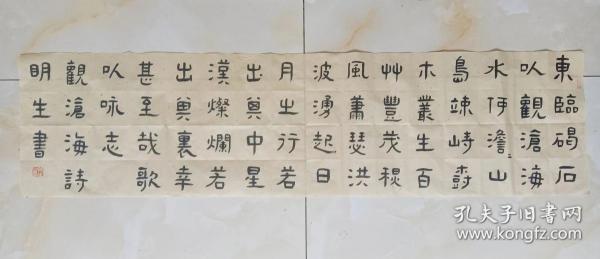 東臨碣石
以觀滄海
水何澹〻山
島竦峙樹
木叢生百
艸豐茂秋
風蕭瑟洪
波湧起日
月之行若
出其中星
漢燦爛若
出其裏幸
甚至哉歌
以咏志
觀滄海詩
明生書
孔夫子旧书网
www.kongfz.com